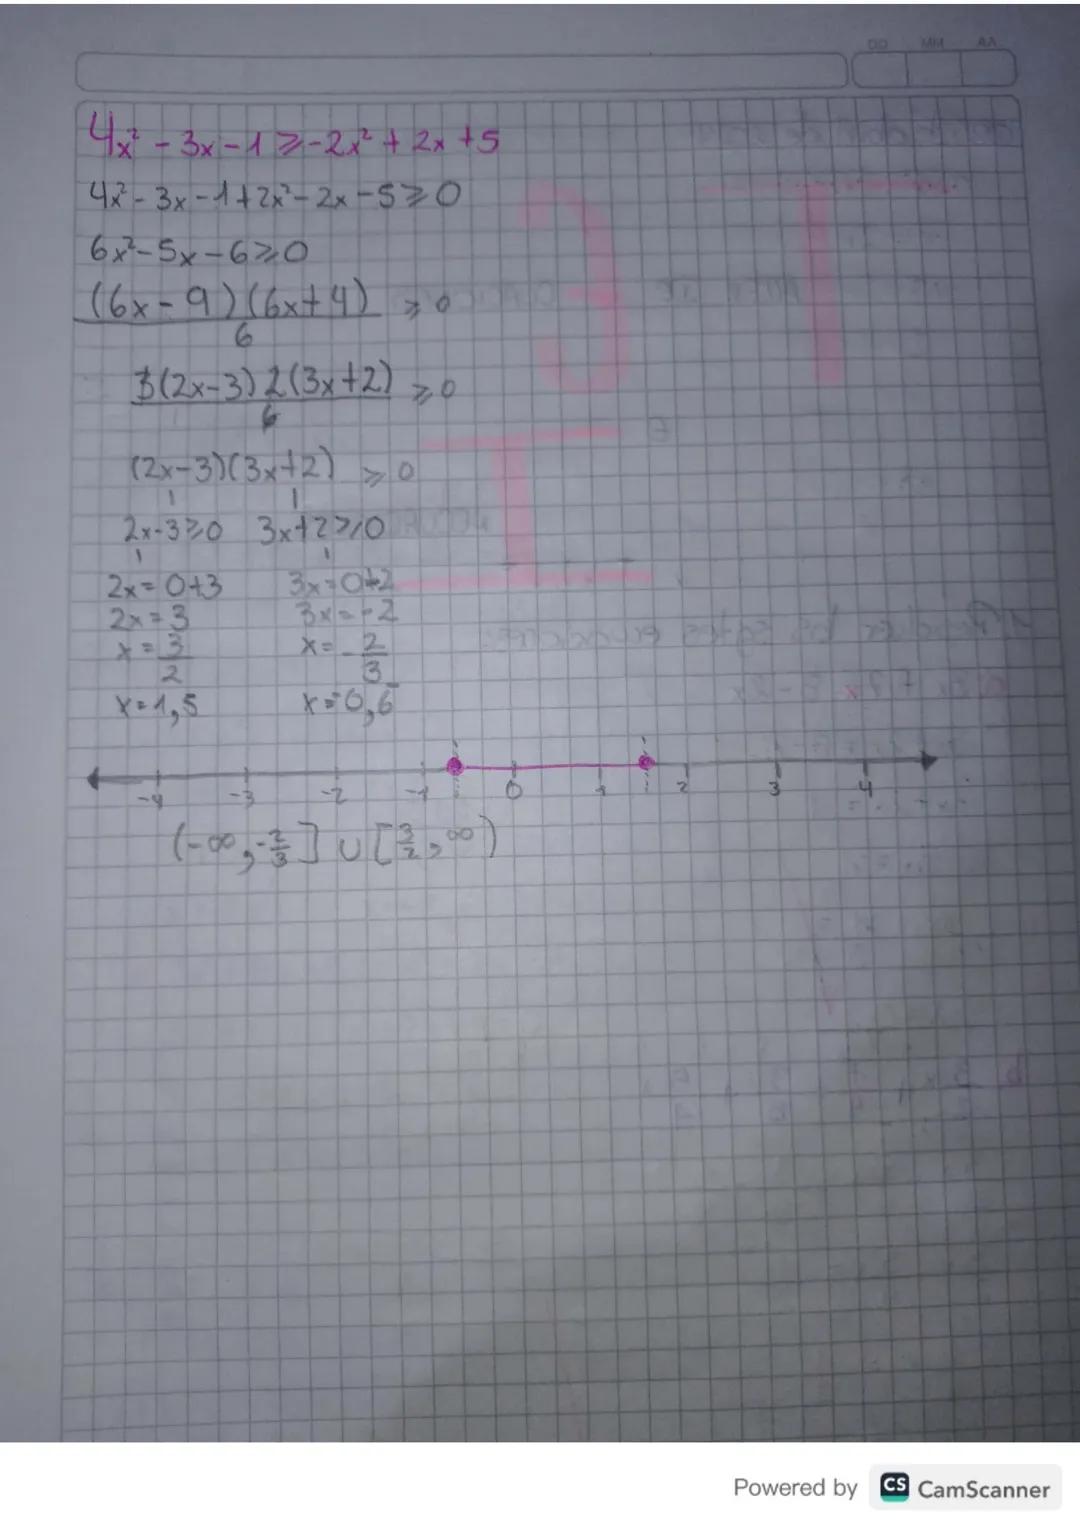 DD MM AA
4x² - 3x - 1 ⩾ -2x² + 2x + 5
4x² - 3x - 1 + 2x² - 2x - 5 ⩾ 0
6x² - 5x - 6 ⩾ 0
(6x - 9)(6x + 4) ⩾ 0
6
3(2x - 3) 2(3x + 2) ⩾ 0
6
(2x - 3)(3x + 2) ⩾ 0
2x - 3 ⩾ 0 3x + 2 ⩾ 0
2x = 0 + 3 3x = 0 + 2
2x = 3 3x = -2
x = 3/2 x = -2/3
x = 1,5 x = 0,6
-4 -3 -2 -1 0 1 2 3 4
(-∞, -2/3] ∪ [3/2, ∞)
Powered by CS CamScanner